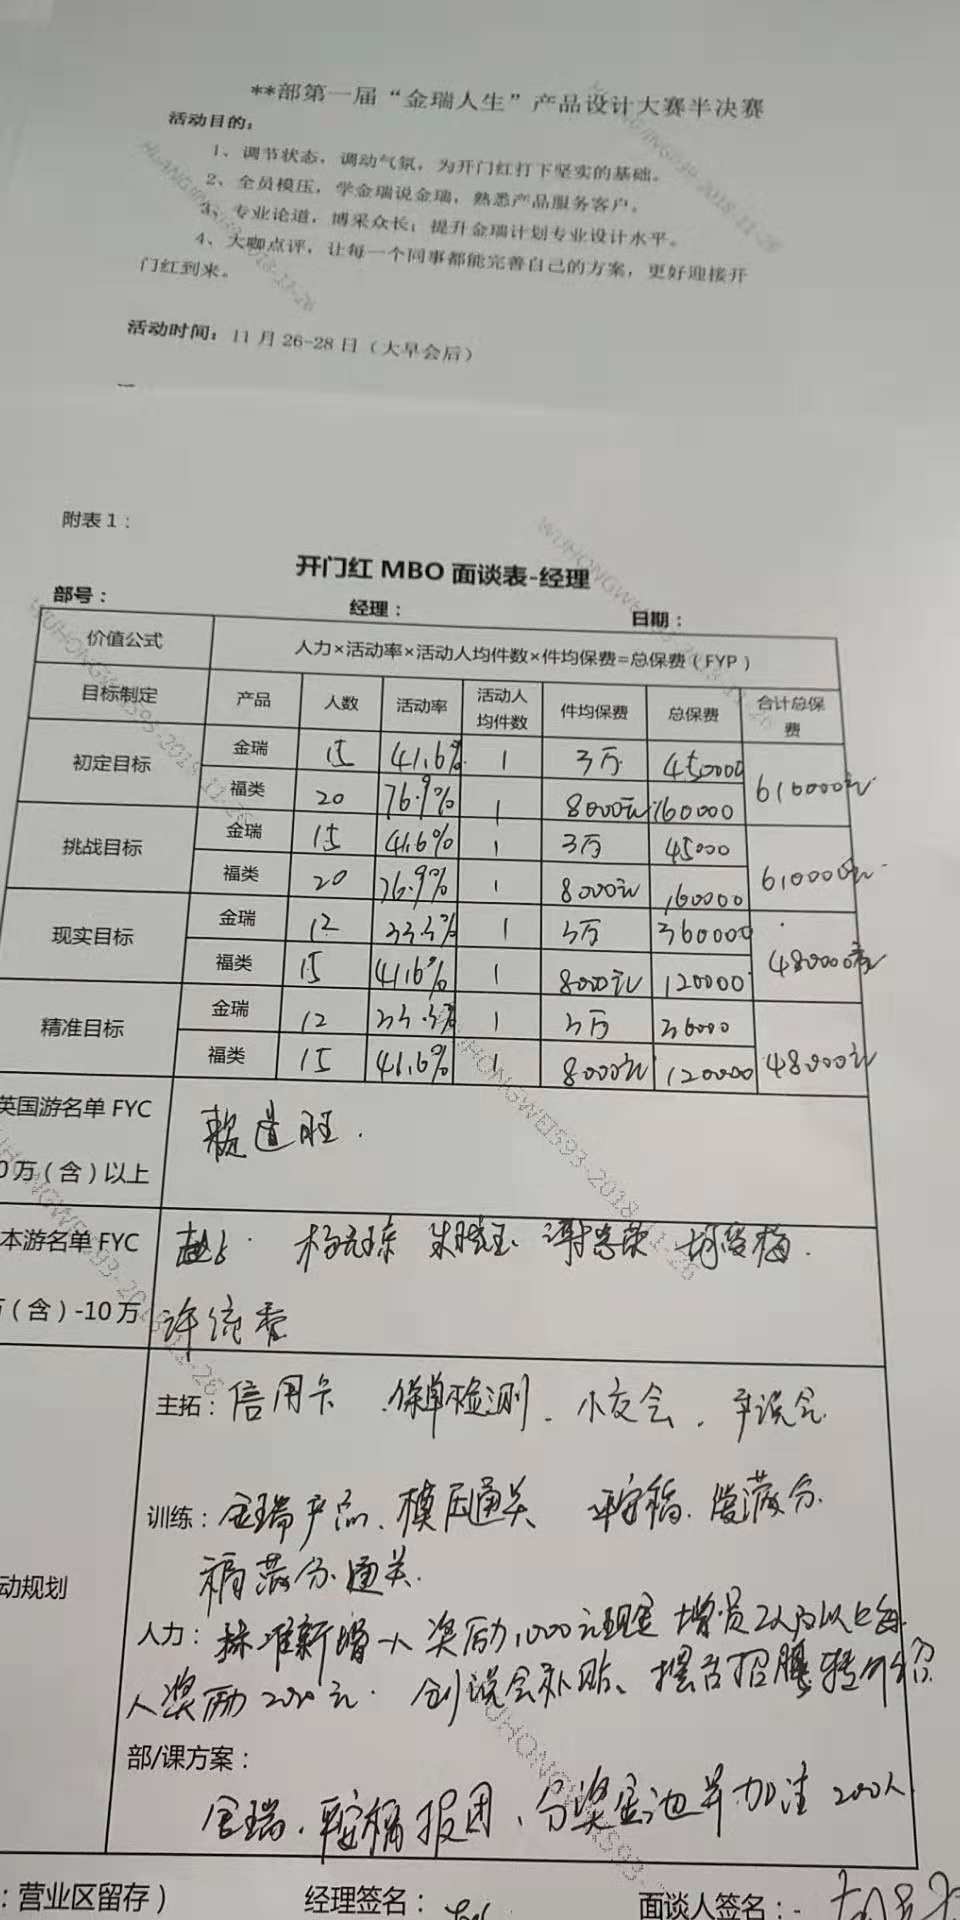 **部第一届“金瑞人生”产品设计大赛半决赛
活动目的：
1、调节状态，调动气氛，为开门红打下坚实的基础。
2、全员模压，学金瑞说金瑞，熟悉产品服务客户。
3、专业论道，博采众长；提升金瑞计划专业设计水平。
4、大咖点评，让每一个同事都能完善自己的方案，更好迎接开
门红到来。
活动时间：11月26-28日（大早会后）
附表1：
开门红 MBO 面谈表-经理
部号： 经理： 日期：
价值公式 人力×活动率×活动人均件数×件均保费=总保费（FYP）
目标制定 产品 人数 活动率 活动人均件数 件均保费 总保费 合计总保费
初定目标 金瑞 15 41.6% 1 3万 450000 610000元
福类 20 76.9% 1 8000元 160000
挑战目标 金瑞 15 41.6% 1 3万 45000 610000元
福类 20 76.9% 1 8000元 160000
现实目标 金瑞 12 33.3% 1 3万 360000 480000元
福类 15 41.6% 1 8000元 120000
精准目标 金瑞 12 33.3% 1 3万 36000 48000元
福类 15 41.6% 1 8000元 120000
英国游名单 FYC
0万（含）以上
本游名单 FYC
（含）-10万 许
主拓：信用卡 保单检测 小交会 产说会
训练：金瑞产品、模压通关 平安福
福满分通关
动规划
人力：标准新增一人奖励1000元现金 增员2人及以上每
人奖励2000元 创说会补贴、摆台招聘
部/课方案：
金瑞、平安福报团、分奖金池并加注200
：营业区留存） 经理签名： 面谈人签名：
WUHONGWEI593-2018-11-26